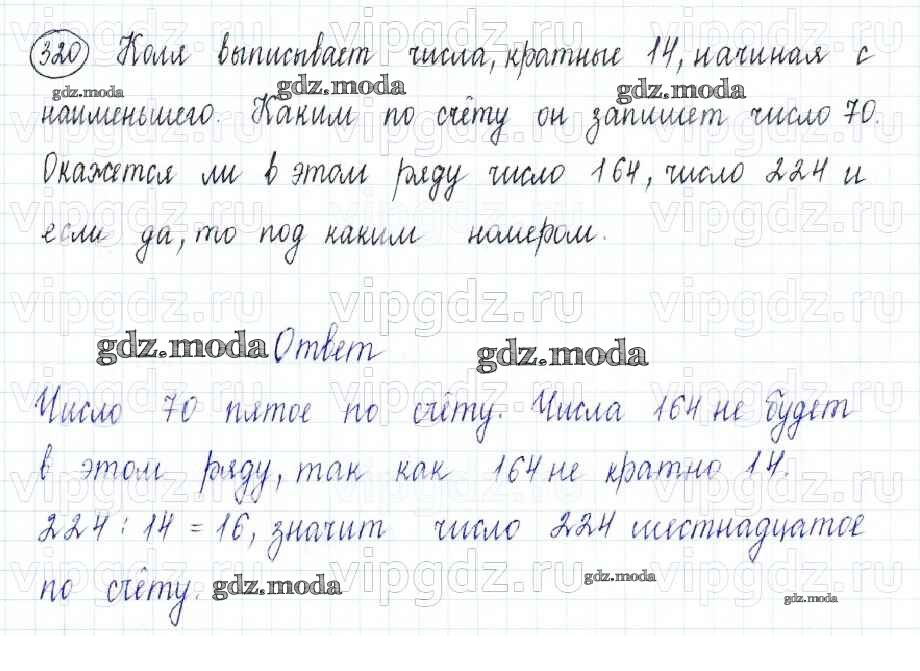 320 Коля выписывает числа, кратные 14, начиная с
наименьшего. Каким по счёту он запишет число 70.
Окажется ли в этом ряду число 164, число 224 и
если да, то под каким номером.
Ответ
Число 70 пятое по счёту. Числа 164 не будет
в этом ряду, так как 164 не кратно 14.
224 : 14 = 16, значит число 224 шестнадцатое
по счёту.
gdz.moda
gdz.moda
gdz.moda
gdz.moda
gdz.moda
gdz.moda
gdz.moda
gdz.moda
vipgdz.ru